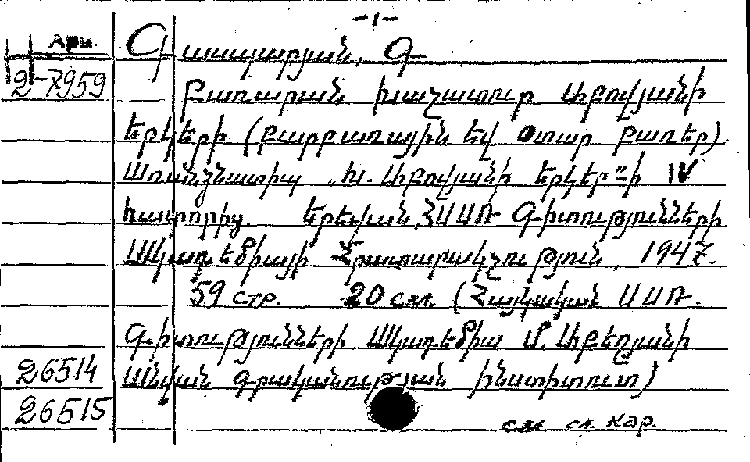 -1-
Арм.
Գասպարյան, Գ
2-7959
Բառարան Խաչատուր Աբովյանի
երկերի (բարբառային եվ օտար բառեր)
Առանձնատիպ „Խ. Աբովյանի երկեր"-ի IV
հատորից. Երեվան, ՀՍՍՌ Գիտությունների
Ակադեմիայի Հրատարակչություն, 1947.
59 стр. 20 см. (Հայկական ՍՍՌ.
Գիտությունների Ակադեմիա Մ. Աբեղյանի
26514 Անվան գրականության ինստիտուտ)
26515
см сл. кар.